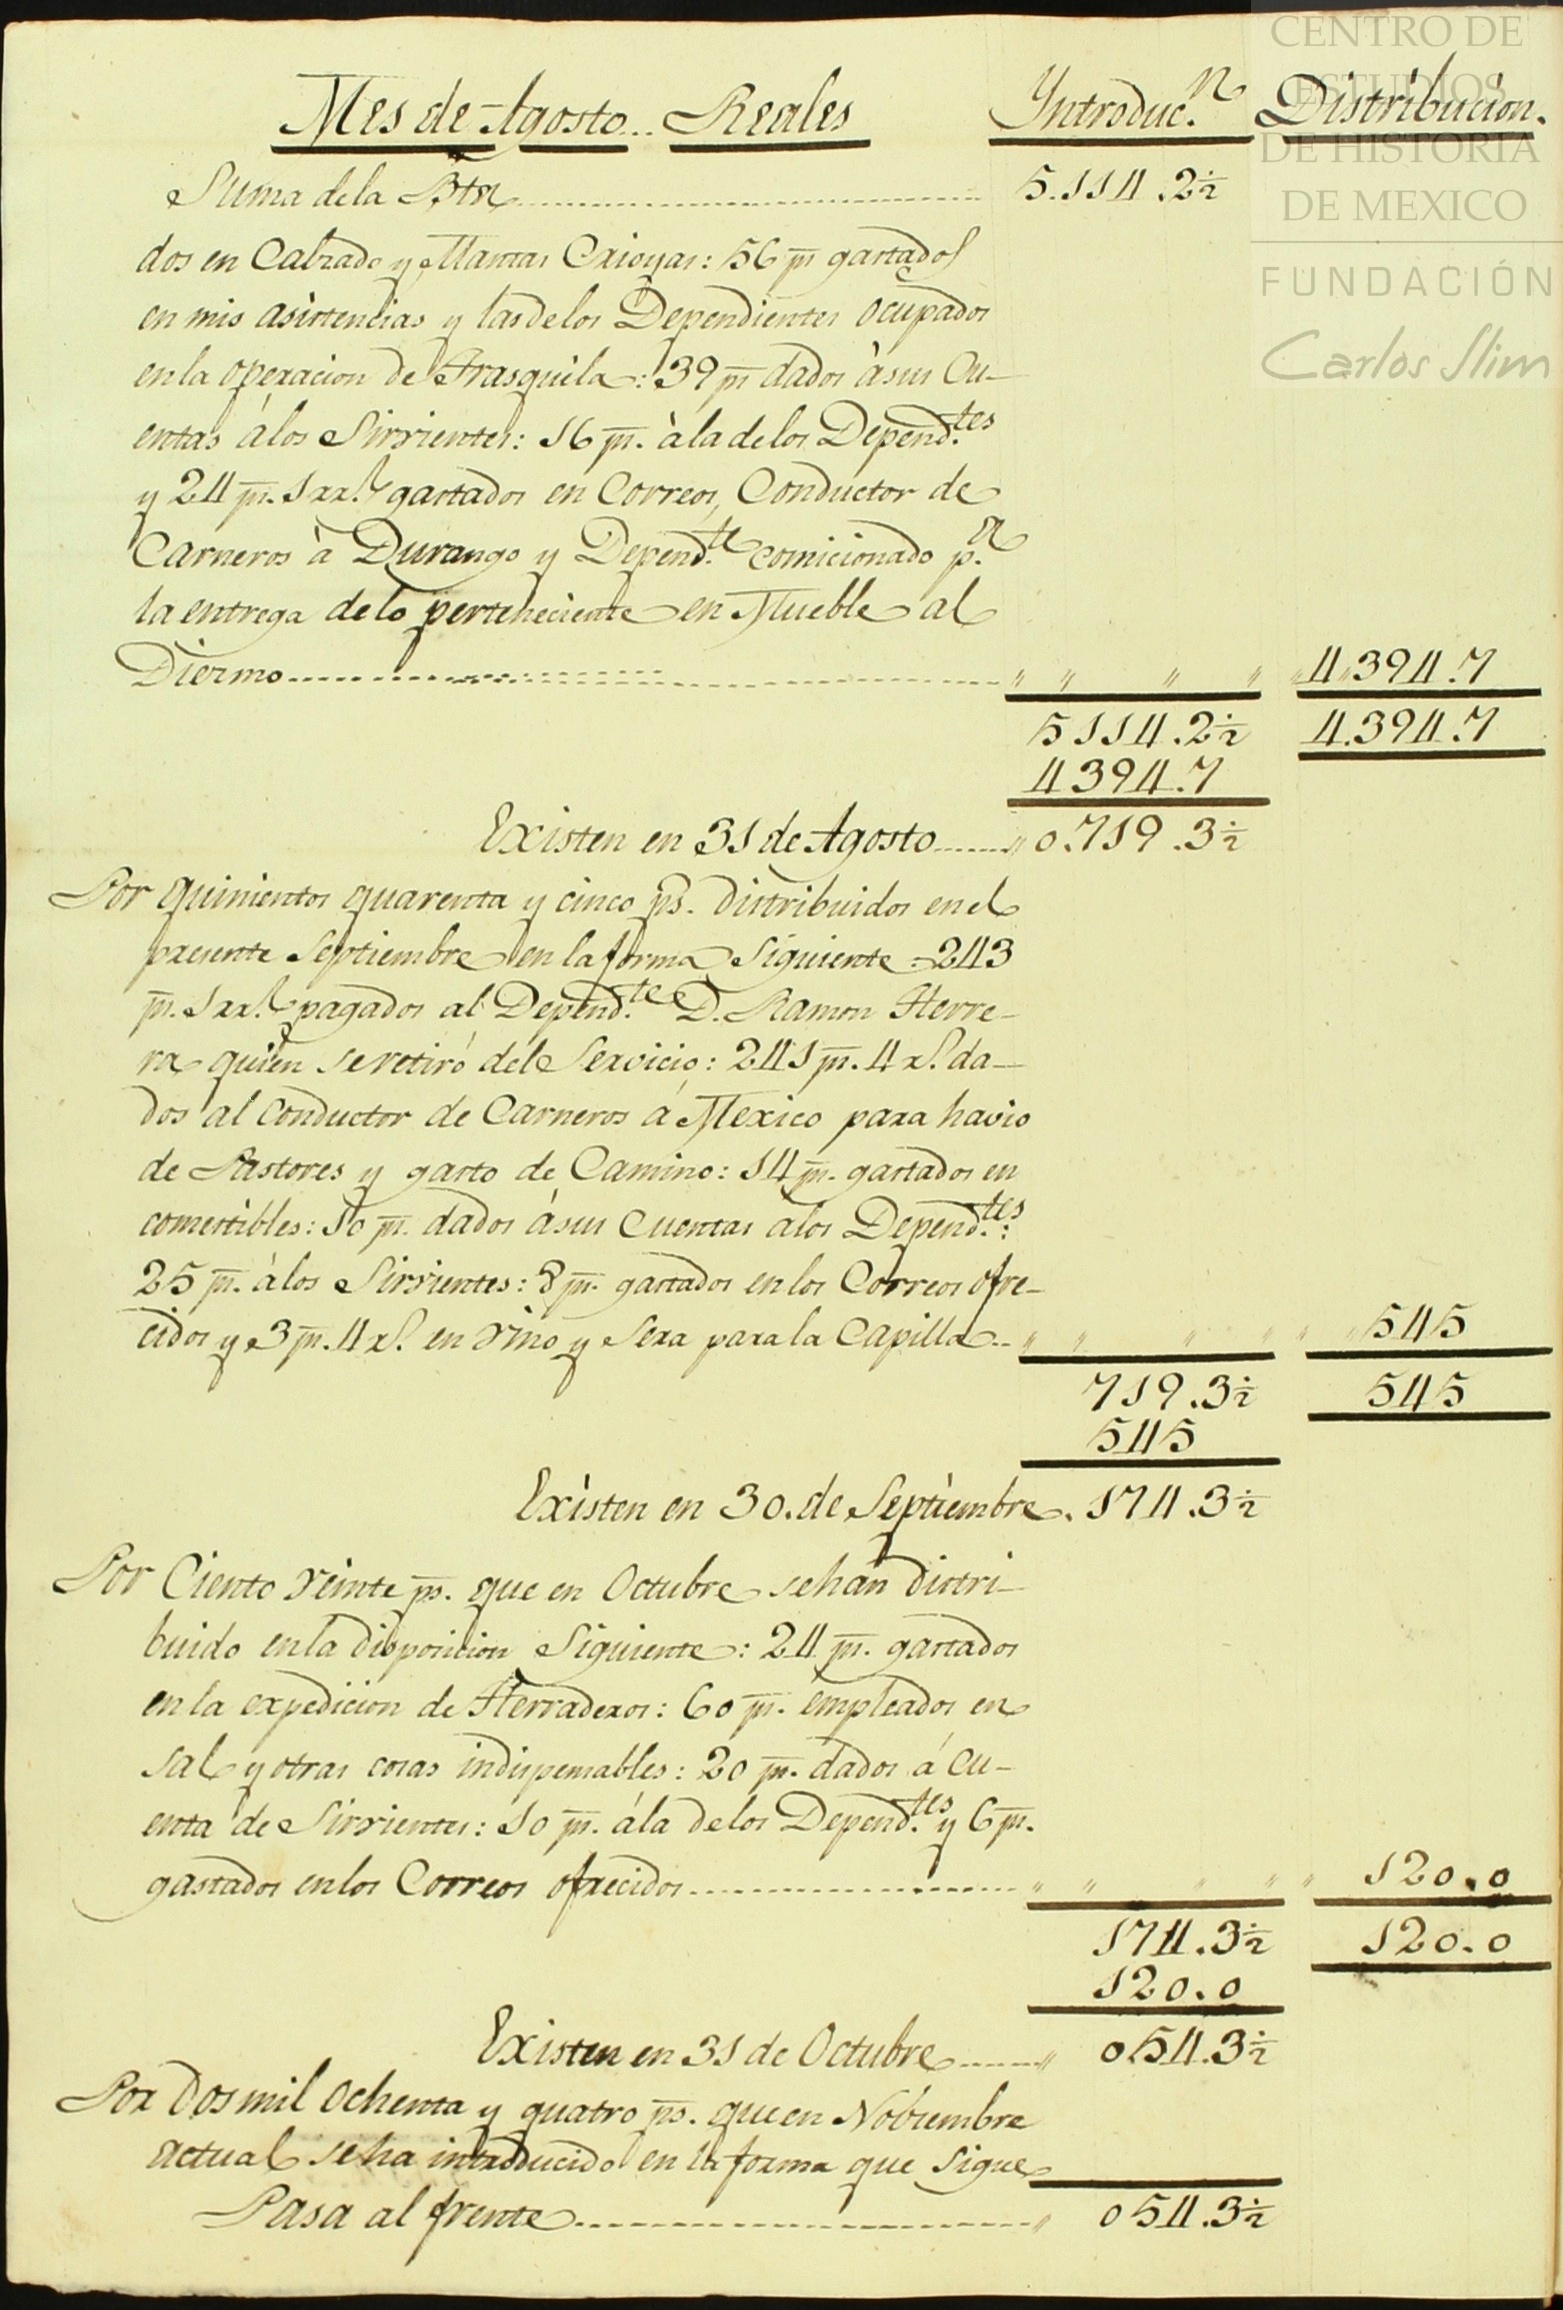 CENTRO DE
ESTUDIOS
DE HISTORIA
DE MEXICO
FUNDACIÓN
Carlos Slim
Mes de Agosto.. Reales Introduc.n Distribucion.
Suma de la Btã 5.114.2½
dos en Calzado y Mantas Crioyas: 56 ps gastados
en mis asistencias y las de los Dependientes ocupados
en la operacion de Trasquila: 39 ps dados à sus Cu-
entas à los Sirvientes: 16 ps. à la de los Depend.tes
y 24 ps. 1 rr.l gastados en Correos, Conductor de
Carneros à Durango y Depend.te comicionado p.a
la entrega de lo perteneciente en Mueble al
Diezmo " " " " " 4"394.7
5114.2½ 4.394.7
4394.7
Existen en 31 de Agosto " 0.719.3½
Por quinientos quarenta y cinco ps. distribuidos en el
presente Septiembre en la forma Siguiente: 243
ps. 1 rr.l pagados al Depend.te D. Ramon Herre-
ra quien se retiró del Servicio: 241 ps. 4 rs. da-
dos al Conductor de Carneros á Mexico para havio
de Pastores y gasto de Camino: 14 ps. gastados en
comestibles: 10 ps. dados á sus Cuentas a los Depend.tes:
25 ps. à los Sirvientes: 8 ps. gastados en los Correos ofre-
cidos y 3 ps. 4 rs. en Vino y Sera para la Capilla " " " " " " 545
719.3½ 545
545
Existen en 30. de Septiembre. 174.3½
Por Ciento Veinte ps. que en Octubre se han distri-
buido en la disposicion Siguiente: 24 ps. gastados
en la expedicion de Herraderos: 60 ps. empleados en
sal y otras cosas indispensables: 20 ps. dados á Cu-
enta de Sirvientes: 10 ps. á la de los Depend.tes y 6 ps.
gastados en los Correos ofrecidos " " " " " 120.0
174.3½ 120.0
120.0
Existen en 31 de Octubre " 054.3½
Por Dos mil ochenta y quatro ps. que en Nobiembre
actual se ha introducido en la forma que Sigue
Pasa al frente " 054.3½